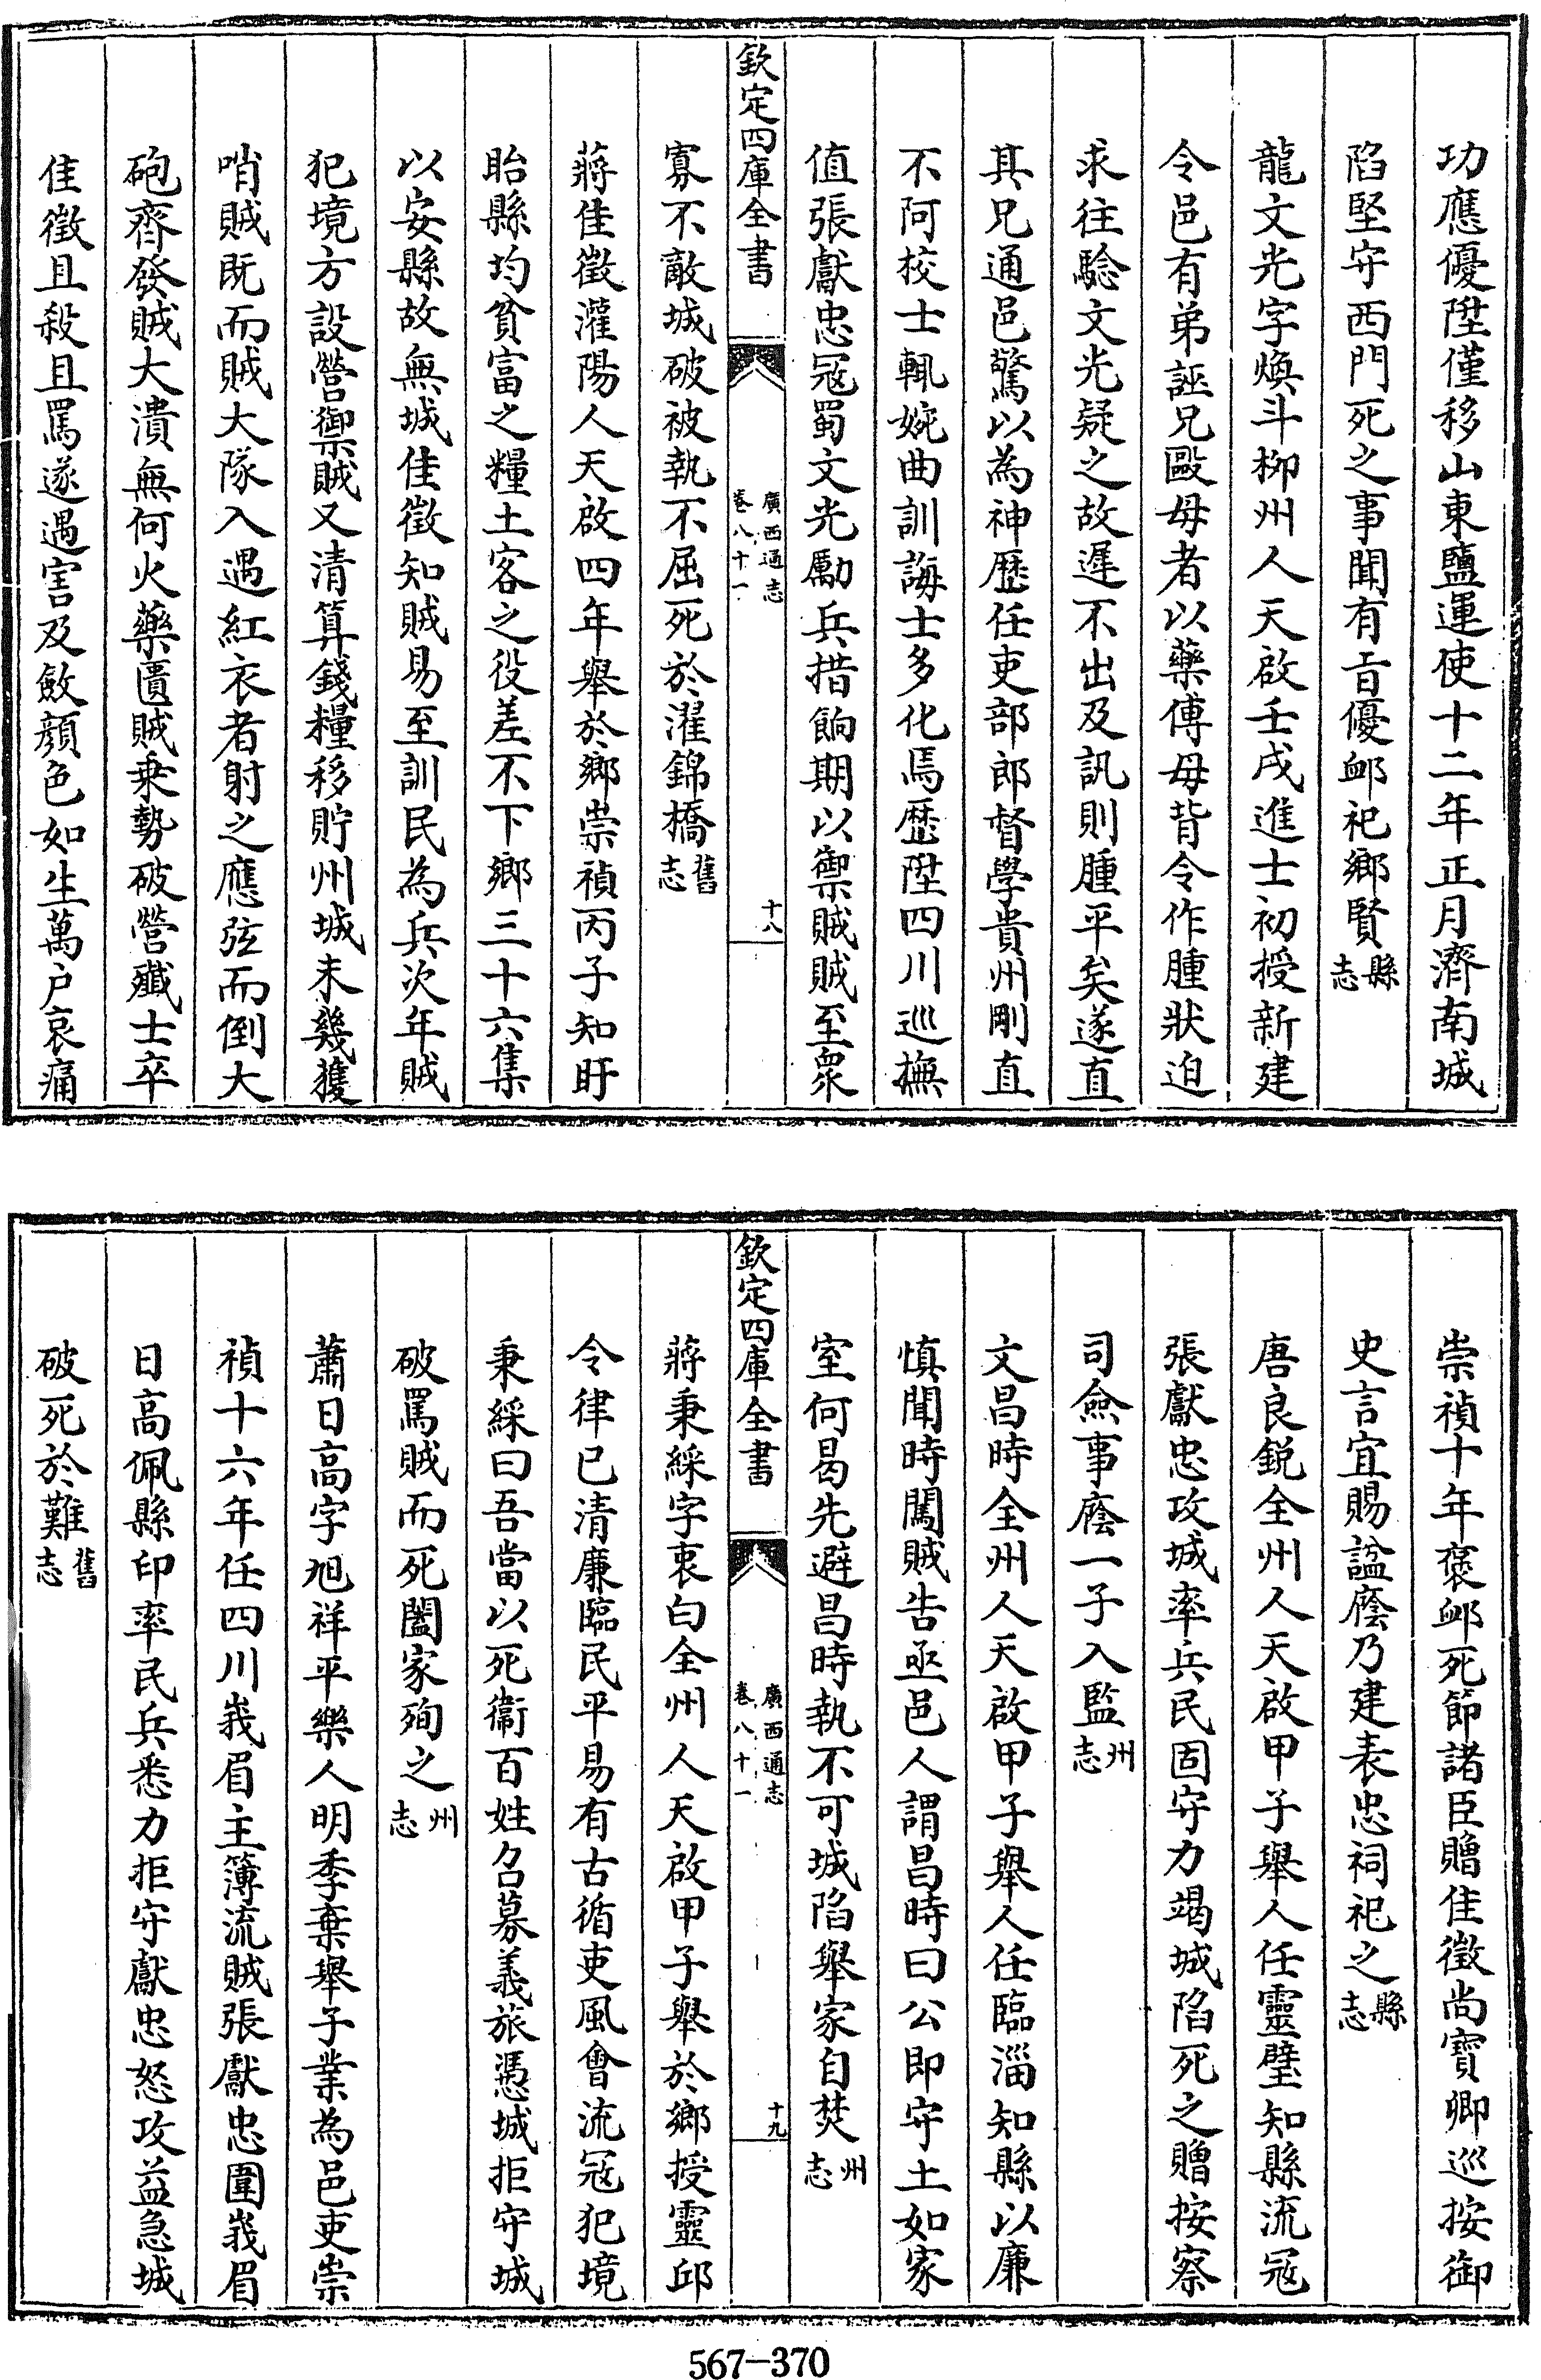 功應優陞僅移山東鹽運使十二年正月濟南城
陷堅守西門死之事聞有㫖優䘏祀鄉賢縣志
龍文光字煥斗柳州人天啟壬戌進士初授新建
令邑有弟誣兄毆母者以藥傅母背令作腫狀迫
求往驗文光疑之故遲不出及訊則腫平矣遂直
其兄通邑驚以為神歴任吏部郎督學貴州剛直
不阿校士輒婉曲訓誨士多化焉歴陞四川巡撫
值張獻忠冦蜀文光勵兵措餉期以禦賊賊至衆
欽定四庫全書
廣西通志
卷八十一
十八
寡不敵城破被執不屈死於濯錦橋舊志
蔣佳徵灌陽人天啟四年舉於鄉崇禎丙子知盱
眙縣均貧富之糧土客之役差不下鄉三十六集
以安縣故無城佳徵知賊易至訓民為兵次年賊
犯境方設營禦賊又清算錢糧移貯州城未幾獲
哨賊既而賊大隊入遇紅衣者射之應弦而倒大
砲齊發賊大潰無何火藥匱賊乗勢破營殲士卒
佳徵且殺且罵遂遇害及斂顔色如生萬户哀痛
崇禎十年褒䘏死節諸臣贈佳徵尚寳卿巡按御
史言宜賜諡廕乃建表忠祠祀之縣志
唐良鋭全州人天啟甲子舉人任靈璧知縣流冦
張獻忠攻城率兵民固守力竭城陷死之贈按察
司僉事廕一子入監州志
文昌時全州人天啟甲子舉人任臨淄知縣以廉
慎聞時闖賊告亟邑人謂昌時曰公即守土如家
室何曷先避昌時執不可城陷舉家自焚州志
欽定四庫全書
廣西通志
卷八十一
十九
蔣秉綵字衷白全州人天啟甲子舉於鄉授靈邱
令律已清廉臨民平易有古循吏風會流冦犯境
秉綵曰吾當以死衞百姓召募義旅憑城拒守城
破罵賊而死闔家殉之州志
蕭日高字旭祥平樂人明季棄舉子業為邑吏崇
禎十六年任四川峩眉主簿流賊張獻忠圍峩眉
日高佩縣印率民兵悉力拒守獻忠怒攻益急城
破死於難舊志
567-370